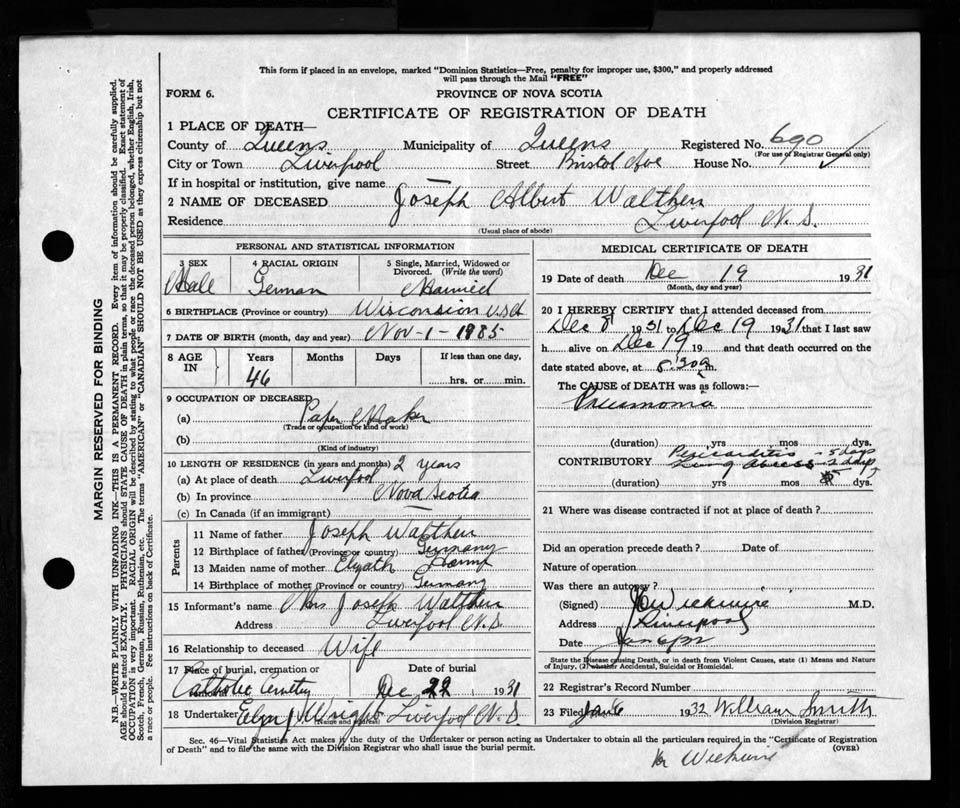 This form if placed in an envelope, marked "Dominion Statistics—Free, penalty for improper use, $300," and properly addressed
will pass through the Mail "FREE"
FORM 6.
PROVINCE OF NOVA SCOTIA
CERTIFICATE OF REGISTRATION OF DEATH
1 PLACE OF DEATH—
County of Queens Municipality of Queens Registered No. 690
(For use of Registrar General only)
City or Town Liverpool Street Bristol Ave House No.
If in hospital or institution, give name
2 NAME OF DECEASED Joseph Albert Walther
Residence Liverpool N.S.
(Usual place of abode)
PERSONAL AND STATISTICAL INFORMATION
3 SEX 4 RACIAL ORIGIN 5 Single, Married, Widowed or
Divorced. (Write the word)
Male German Married
6 BIRTHPLACE (Province or country) Wisconsion USA
7 DATE OF BIRTH (month, day and year) Nov-1-1885
8 AGE IN Years Months Days If less than one day,
46 hrs. or min.
9 OCCUPATION OF DECEASED
(a) Paper Maker
(Trade or occupation or kind of work)
(b)
(Kind of industry)
10 LENGTH OF RESIDENCE (in years and months) 2 years
(a) At place of death Liverpool
(b) In province Nova Scotia
(c) In Canada (if an immigrant) —
Parents
11 Name of father Joseph Walther
12 Birthplace of father (Province or country) Germany
13 Maiden name of mother
14 Birthplace of mother (Province or country) Germany
15 Informant's name Mrs Joseph Walther
Address Liverpool N.S.
16 Relationship to deceased Wife
17 Place of burial, cremation or Date of burial
Catholic Cemetery Dec 22 1931
18 Undertaker J. Wright Liverpool N.S.
MEDICAL CERTIFICATE OF DEATH
19 Date of death Dec 19 1931
(Month, day and year)
20 I HEREBY CERTIFY that I attended deceased from
Dec 8 1931 to Dec 19 1931 that I last saw
h alive on Dec 19 19 and that death occurred on the
date stated above, at 8.30 a m.
The CAUSE of DEATH was as follows:—
Pneumonia
(duration) yrs mos dys.
CONTRIBUTORY Pericarditis - 5 days
Lung Abcess - 2 days
(duration) yrs mos dys.
21 Where was disease contracted if not at place of death?
Did an operation precede death? Date of
Nature of operation
Was there an autopsy?
(Signed) Wickwire M.D.
Address Liverpool
Date Jan 6/32
State the Disease causing Death, or in death from Violent Causes, state (1) Means and Nature
of Injury, (2) whether Accidental, Suicidal or Homicidal.
22 Registrar's Record Number
23 Filed Jan 6 1932 William Smith
(Division Registrar)
Sec. 46—Vital Statistics Act makes it the duty of the Undertaker or person acting as Undertaker to obtain all the particulars required in the "Certificate of Registration
of Death" and to file the same with the Division Registrar who shall issue the burial permit.
(OVER)
Wickwire
MARGIN RESERVED FOR BINDING
N.B.—WRITE PLAINLY WITH UNFADING INK—THIS IS A PERMANENT RECORD. Every item of information should be carefully supplied.
AGE should be stated EXACTLY. PHYSICIANS should STATE CAUSE OF DEATH in plain terms, so that it may be properly classified. Exact statement of
OCCUPATION is very important. RACIAL ORIGIN will be described by stating to what people or race the deceased person belonged, whether English, Irish,
Scotch, French, German, Russian, Ruthenian, etc. The terms "AMERICAN" or "CANADIAN" SHOULD NOT BE USED as they express citizenship but not
a race or people. See instructions on back of Certificate.